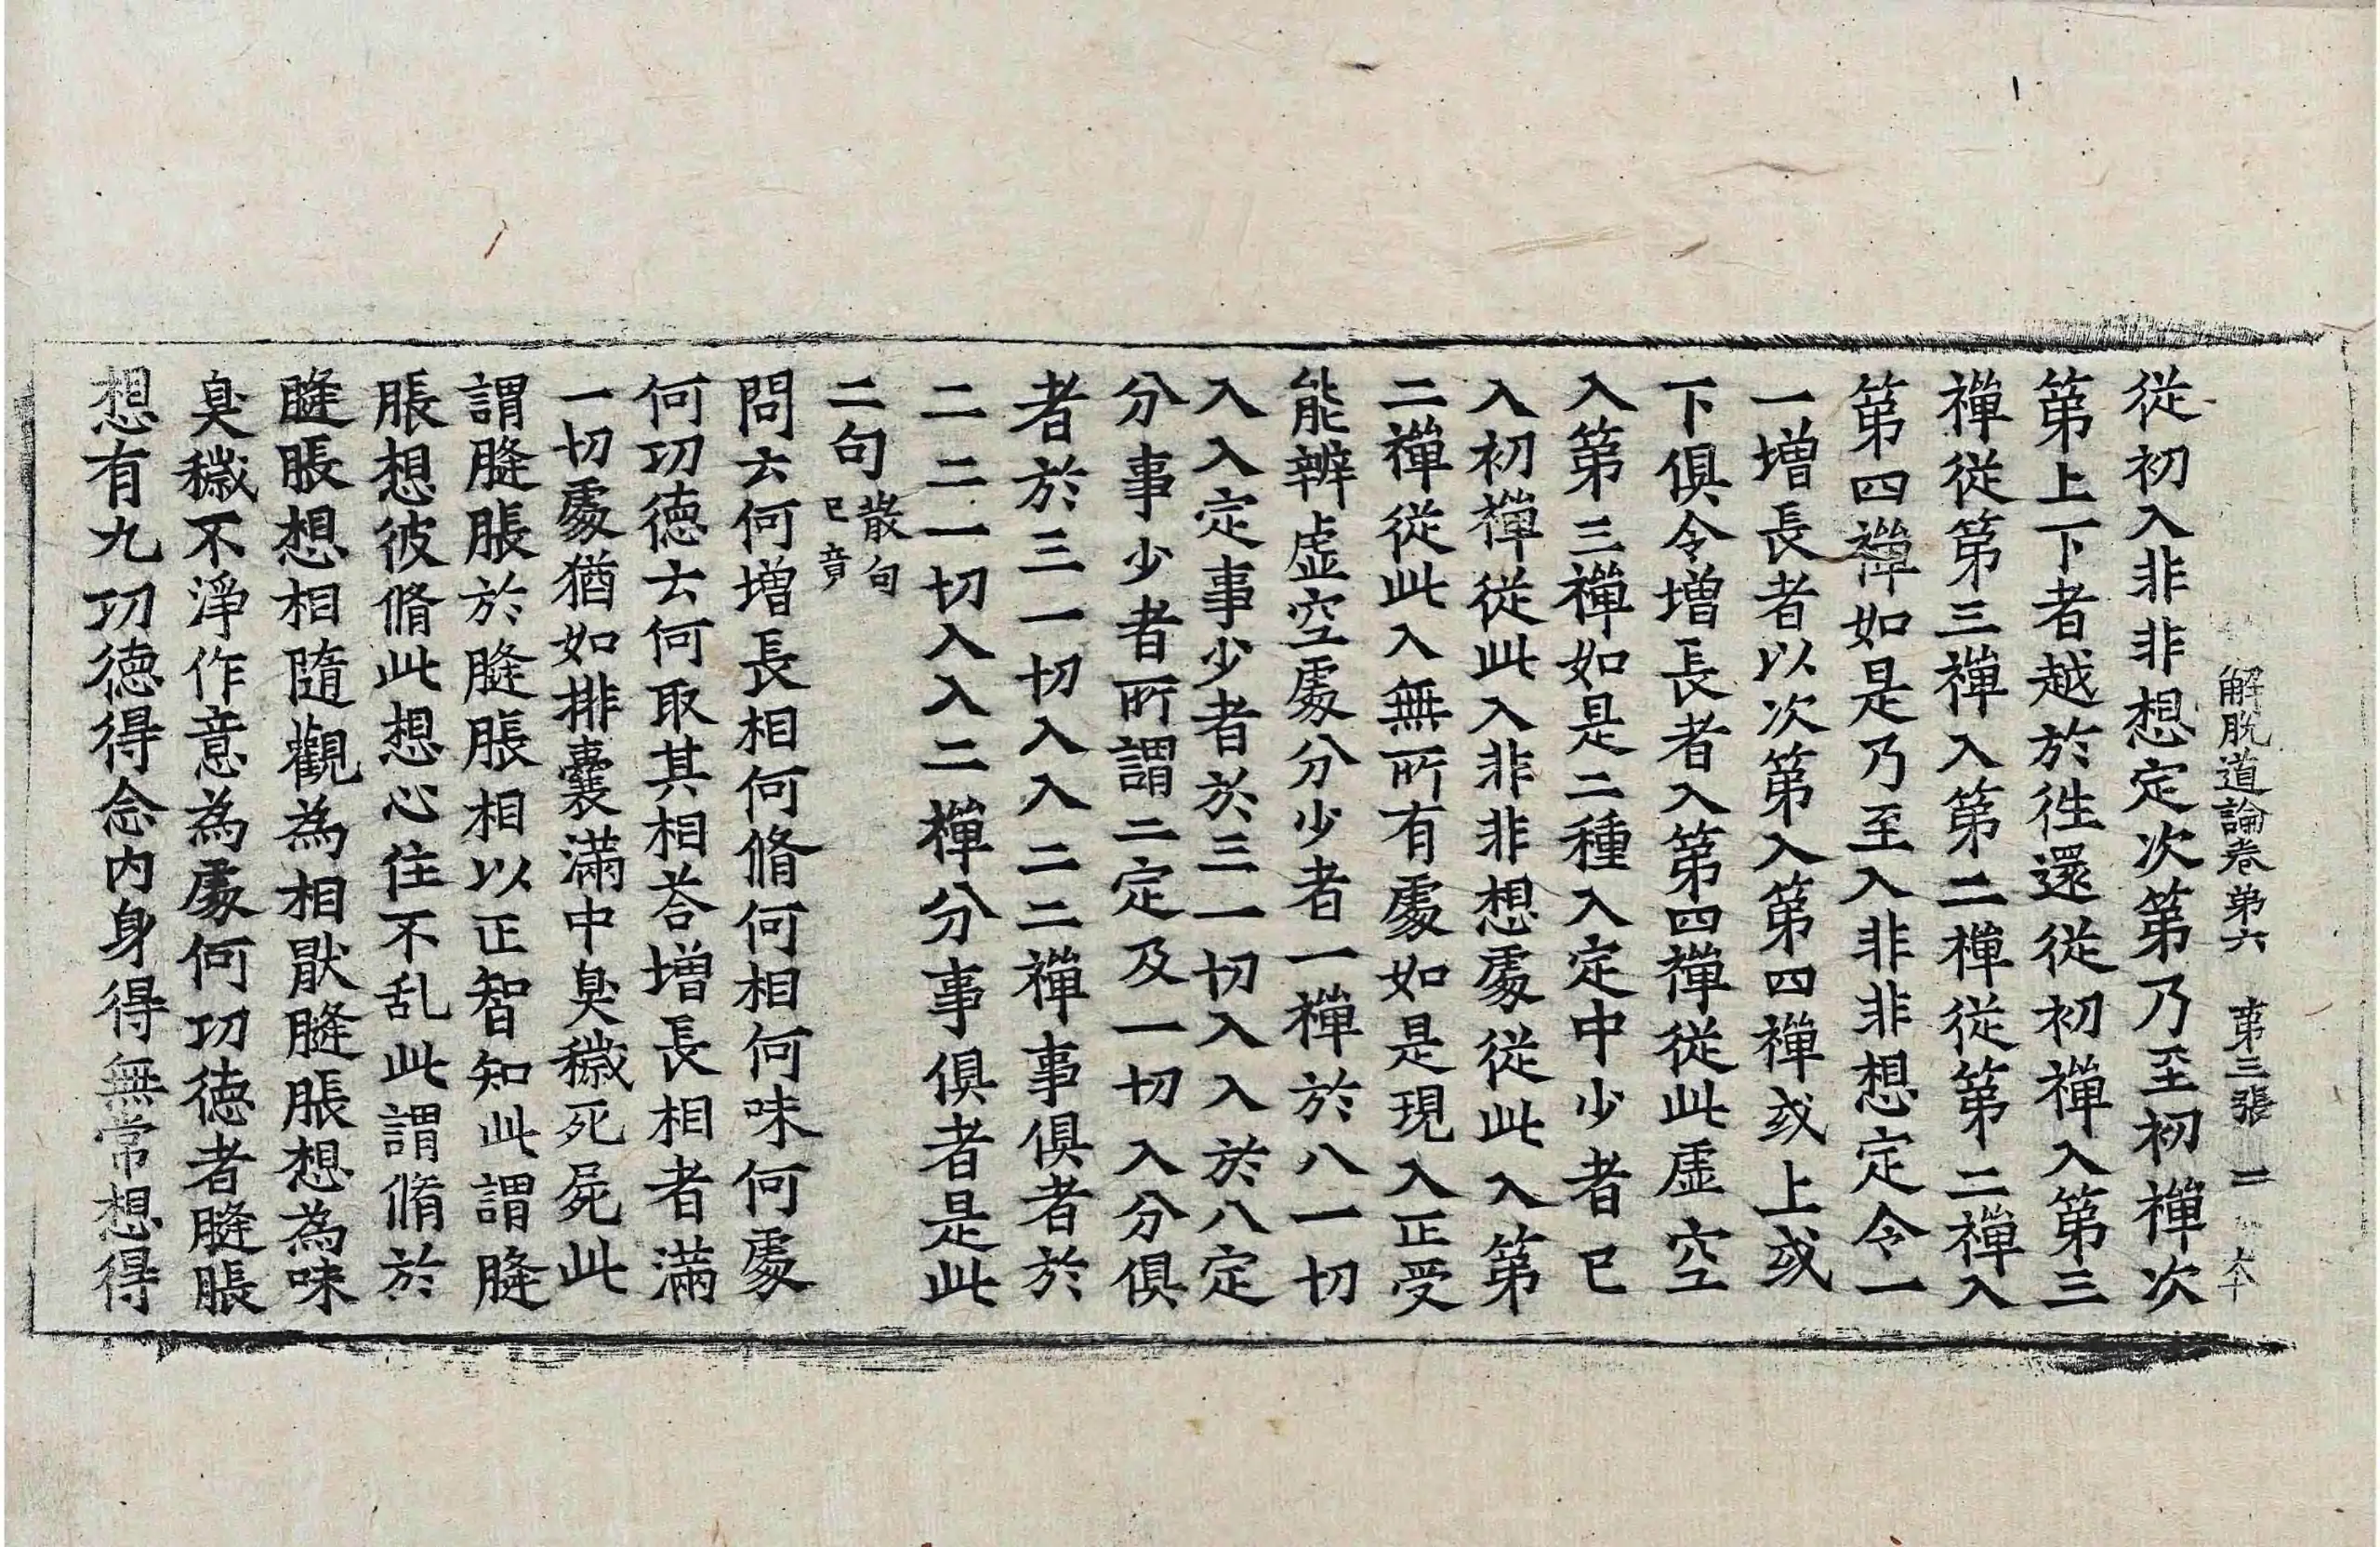 解脫道論卷第六　第三張　二　大
從初入非非想定次第乃至初禪次
第上下者越於徃還從初禪入第三
禪從第三禪入第二禪從第二禪入
第四禪如是乃至入非非想定令一
一增長者以次第入第四禪或上或
下俱令增長者入第四禪從此虛空
入第三禪如是二種入定中少者已
入初禪從此入非非想處從此入第
二禪從此入無所有處如是現入正受
能辨虛空處分少者一禪於八一切
入入定事少者於三一切入入於八定
分事少者所謂二定及一切入分俱
者於三一切入入二二禪事俱者於
二二一切入入二禪分事俱者是此
二句散句已竟
問云何增長相何脩何相何味何處
何功德云何取其相荅增長相者滿
一切處猶如排囊滿中臭穢死屍此
謂膖脹於膖脹相以正智知此謂膖
脹想彼脩此想心住不乱此謂脩於
膖脹想相隨觀為相厭膖脹想為味
臭穢不淨作意為處何功德者膖脹
想有九功德得念內身得無常想得